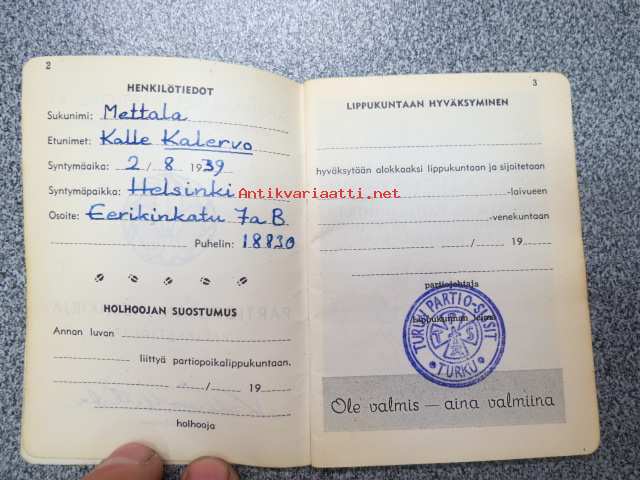 2
HENKILÖTIEDOT
Sukunimi: Mettala
Etunimet: Kalle Kalervo
Syntymäaika: 2 / 8 1939
Syntymäpaikka: Helsinki
Osoite: Eerikinkatu 7a B.
Puhelin: 18830
HOLHOOJAN SUOSTUMUS
Annan luvan
liittyä partiopoikalippukuntaan.
/ 19
holhooja
3
LIPPUKUNTAAN HYVÄKSYMINEN
hyväksytään alokkaaksi lippukuntaan ja sijoitetaan
-laivueen
-venekuntaan
/ 19
partiojohtaja
lippukunnan leima
TURUN PARTIO-SISSIT
TURKU
Ole valmis — aina valmiina
Antikvariaatti.net